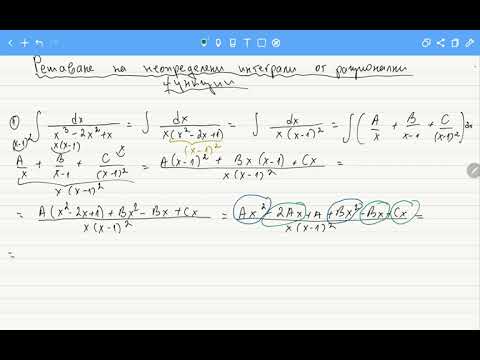 Решаване на неопределени интеграли от рационални
функции
① ∫ dx/(x³-2x²+x) = ∫ dx/(x(x²-2x+1)) = ∫ dx/(x(x-1)²) = ∫(A/x + B/(x-1) + C/(x-1)²)dx
(x-1)² x(x-1) x (x-1)²
A/x + B/(x-1) + C/(x-1)² = (A(x-1)² + Bx(x-1) + Cx)/(x(x-1)²) =
x(x-1)²
= (A(x²-2x+1)+Bx²-Bx+Cx)/(x(x-1)²) = (Ax²-2Ax+A+Bx²-Bx+Cx)/(x(x-1)²) =
=